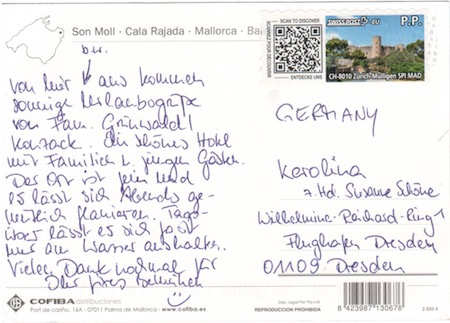 Son Moll · Cala Rajada · Mallorca
SCAN TO DISCOVER
SCANNEZ POUR DÉCOUVRIR
ENTDECKE UNS
SWISS POST .eu
P.P.
CH-8010 Zürich-Mülligen SPI MAD
von hier aus kommen
sonnige Urlaubsgrüße
von Fam. Grünwald /
Ein schönes Hotel
mit Familien u. jungen Gästen.
Der Ort ist fein und
es lässt sich Abends ge-
mütlich flanieren. Tags-
über lässt es sich fast
nur am Wasser aushalten.
Vielen Dank nochmal für
Ihr Bemühen
GERMANY
Karolina
z. Hd. Susanne Schöne
Wilhelmine-Reichard-Ring 1
Flughafen Dresden
01109 Dresden
COFIBA distribuciones
Port de cariño, 16A - 07011 Palma de Mallorca
www.cofiba.es
REPRODUCCIÓN PROHIBIDA
8 423987 130676